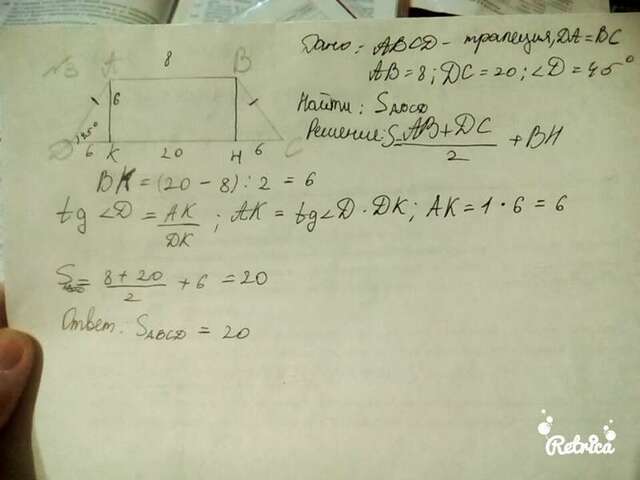 №3
Дано: ABCD - трапеция, DA = BC
AB = 8; DC = 20; ∠D = 45°
Найти: S ABCD
Решение: S = AB + DC / 2 + BH
A 8 B
6
45°
D 6 K 20 H 6 C
BK = (20 - 8) : 2 = 6
tg ∠D = AK / DK ; AK = tg ∠D · DK; AK = 1 · 6 = 6
S = 8 + 20 / 2 + 6 = 20
Ответ: S ABCD = 20
Retrica